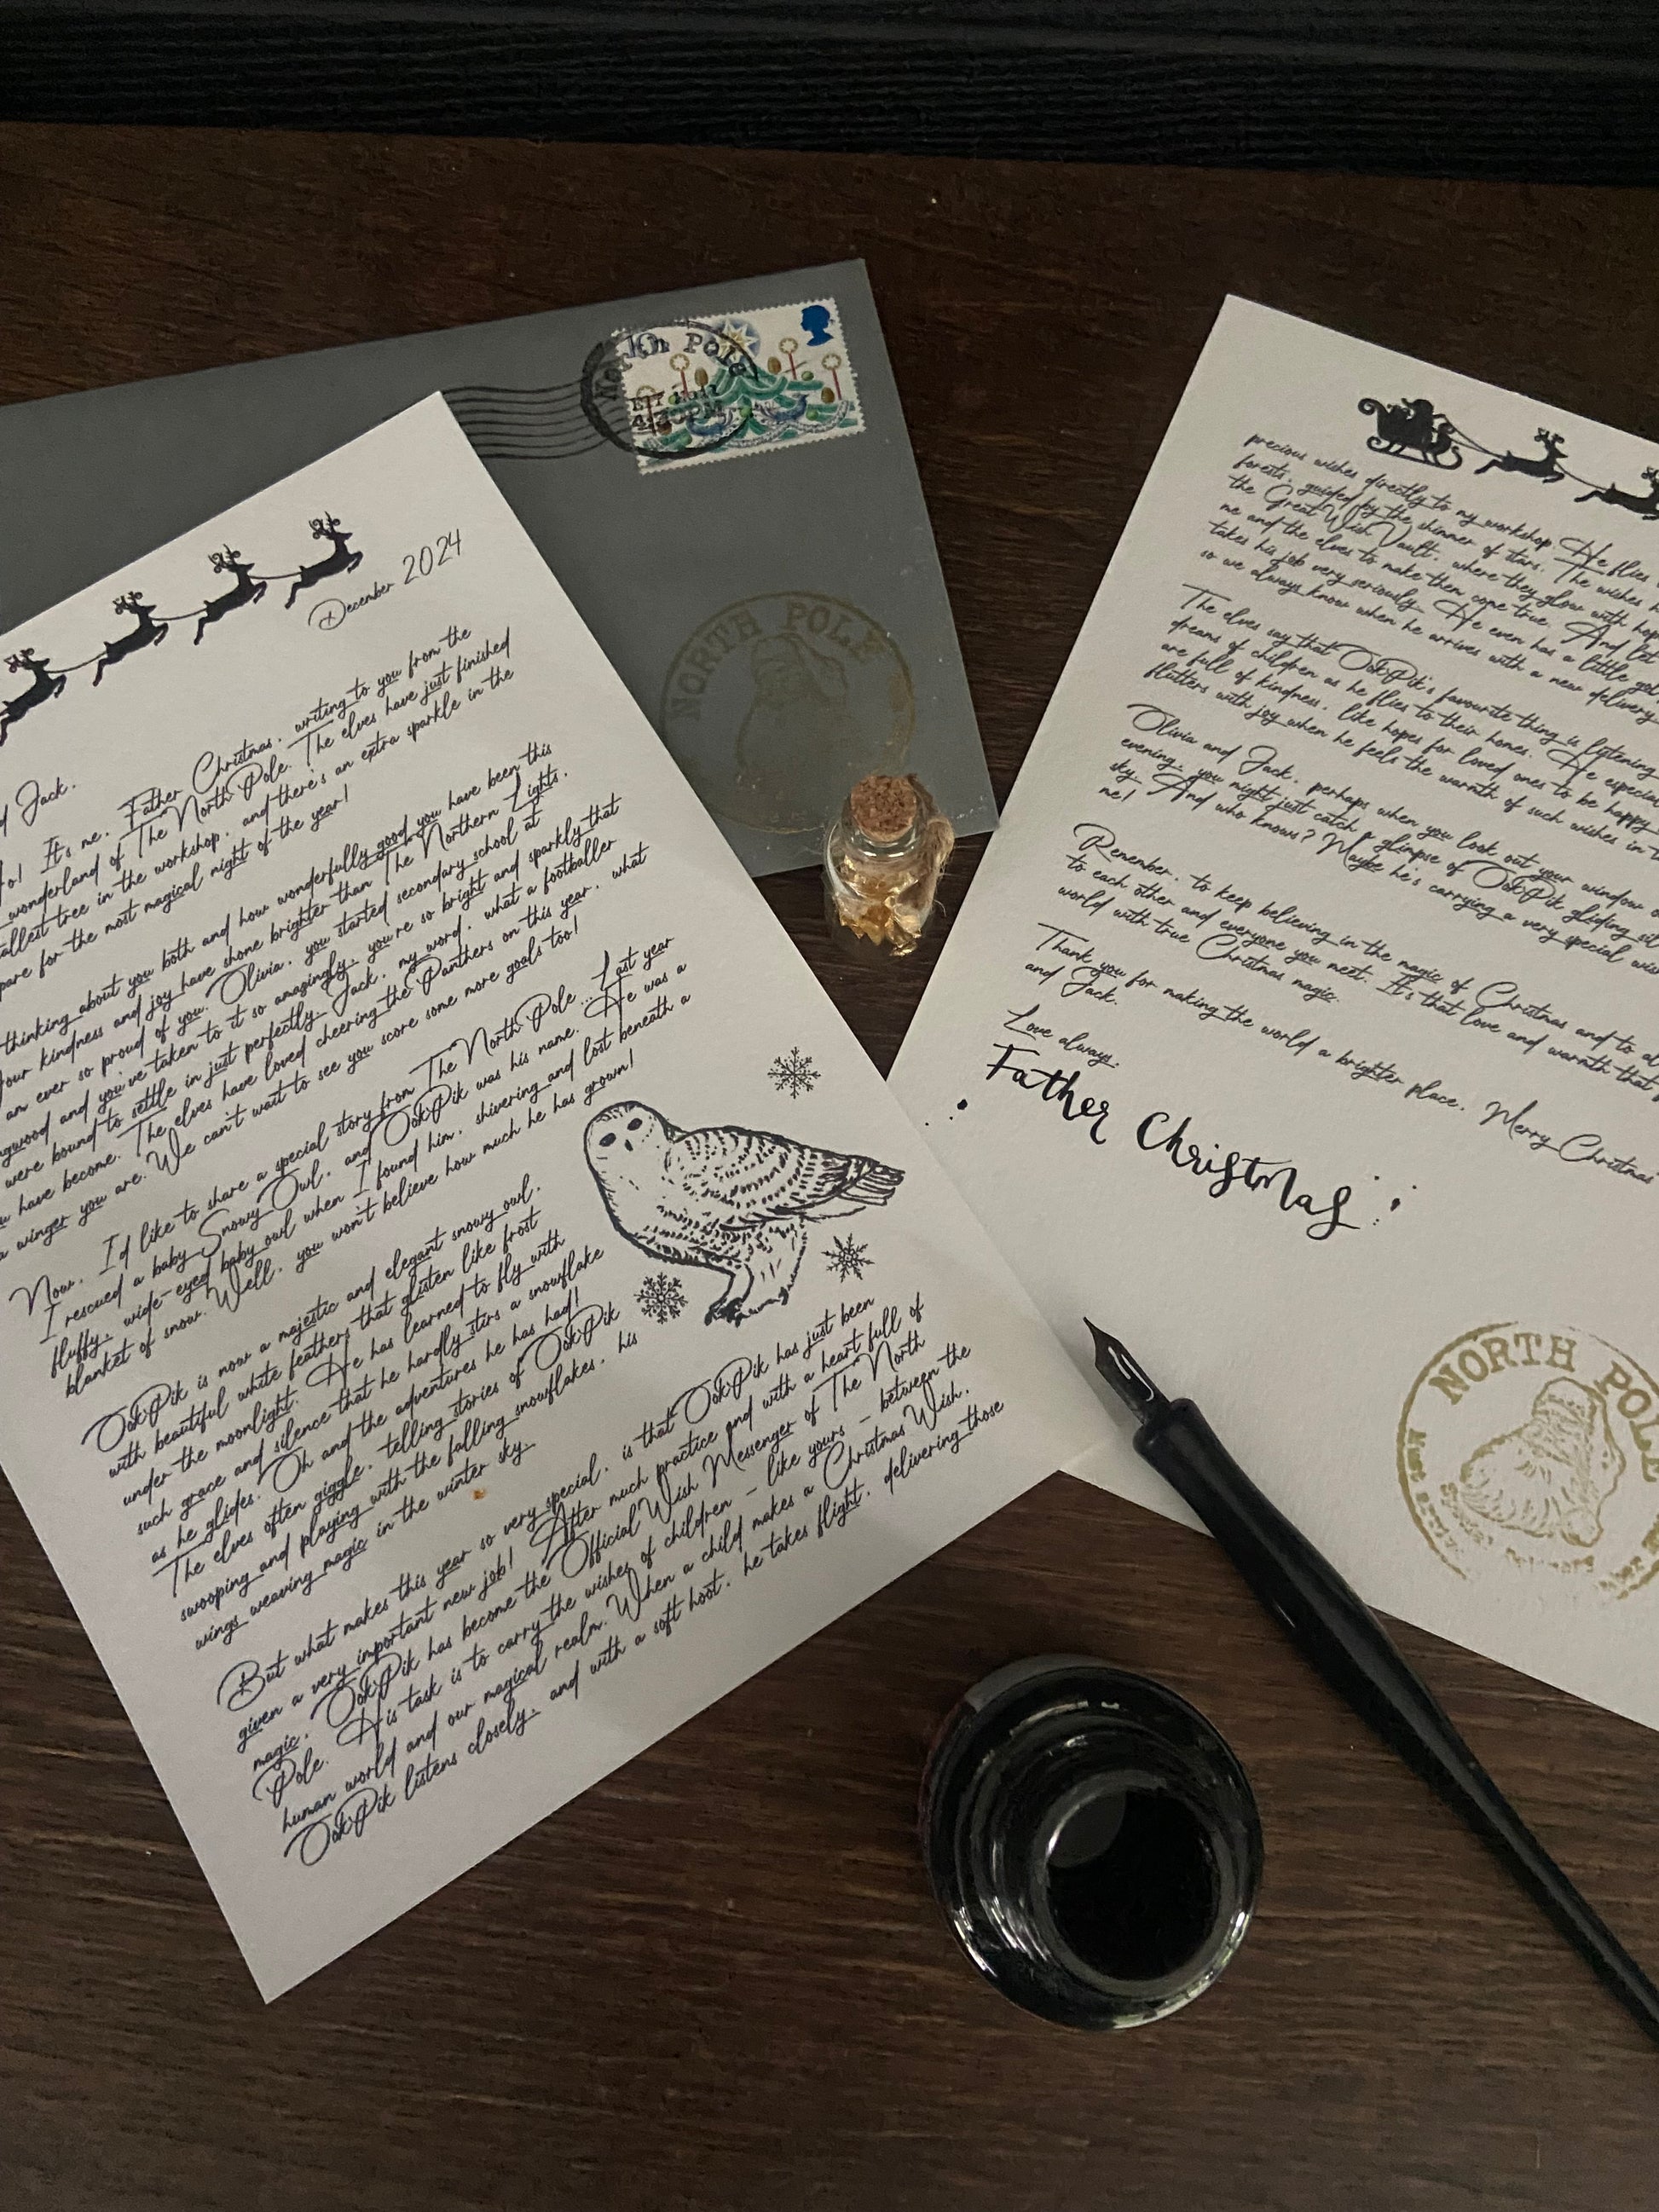 December 2024
Jack.
It's me, Father Christmas, writing to you from the
wonderland of The North Pole. The elves have just finished
tallest tree in the workshop, and there's an extra sparkle in the
for the most magical night of the year!
thinking about you both and how wonderfully good you have been this
kindness and joy have shone brighter than The Northern Lights.
am ever so proud of you. Olivia, you started secondary school at
and you've taken to it so amazingly, you're so bright and sparkly that
were bound to settle in just perfectly. Jack, my word, what a footballer
have become. The elves have loved cheering the Panthers on this year, what
a winger you are. We can't wait to see you score some more goals too!
Now, I'd like to share a special story from The North Pole... Last year
I rescued a baby Snowy Owl, and OokPik was his name. He was a
fluffy, wide-eyed baby owl when I found him, shivering and lost beneath a
blanket of snow. Well, you won't believe how much he has grown!
OokPik is now a majestic and elegant snowy owl,
with beautiful white feathers that glisten like frost
under the moonlight. He has learned to fly with
such grace and silence that he hardly stirs a snowflake
as he glides. Oh and the adventures he has had!
The elves often giggle, telling stories of OokPik
swooping and playing with the falling snowflakes, his
wings weaving magic in the winter sky.
But what makes this year so very special, is that OokPik has just been
given a very important new job! After much practice and with a heart full of
magic, OokPik has become the Official Wish Messenger of The North
Pole. His task is to carry the wishes of children - like yours - between the
human world and our magical realm. When a child makes a Christmas Wish,
OokPik listens closely, and with a soft hoot, he takes flight, delivering those
North Pole
NORTH POLE
precious wishes directly to my workshop. He flies
forests, guided by the shimmer of stars. The wishes
the Great Wish Vault, where they glow with
me and the elves to make them come true. And let
takes his job very seriously. He even has a little
so we always know when he arrives with a new delivery
The elves say that OokPik's favourite thing is listening
dreams of children as he flies to their homes. He
are full of kindness, like hopes for loved ones to be happy
flutters with joy when he feels the warmth of such wishes in
Olivia and Jack, perhaps when you look out your window
evening, you might just catch a glimpse of OokPik gliding
sky. And who knows? Maybe he's carrying a very special
me!
Remember, to keep believing in the magic of Christmas and to
to each other and everyone you meet. It's that love and warmth that
world with true Christmas magic.
Thank you for making the world a brighter place. Merry Christmas
and Jack.
Love always,
Father Christmas
NORTH POLE